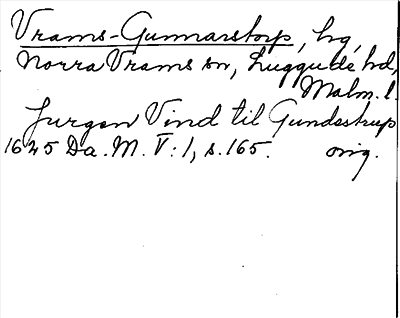 Vrams-Gunnarstorp, hg,
Norra Vrams sn, Luggude hd,
Malm. l.
Jurgen Vind til Gundsstrup
1645 Da. M. V:1, s. 165. orig.